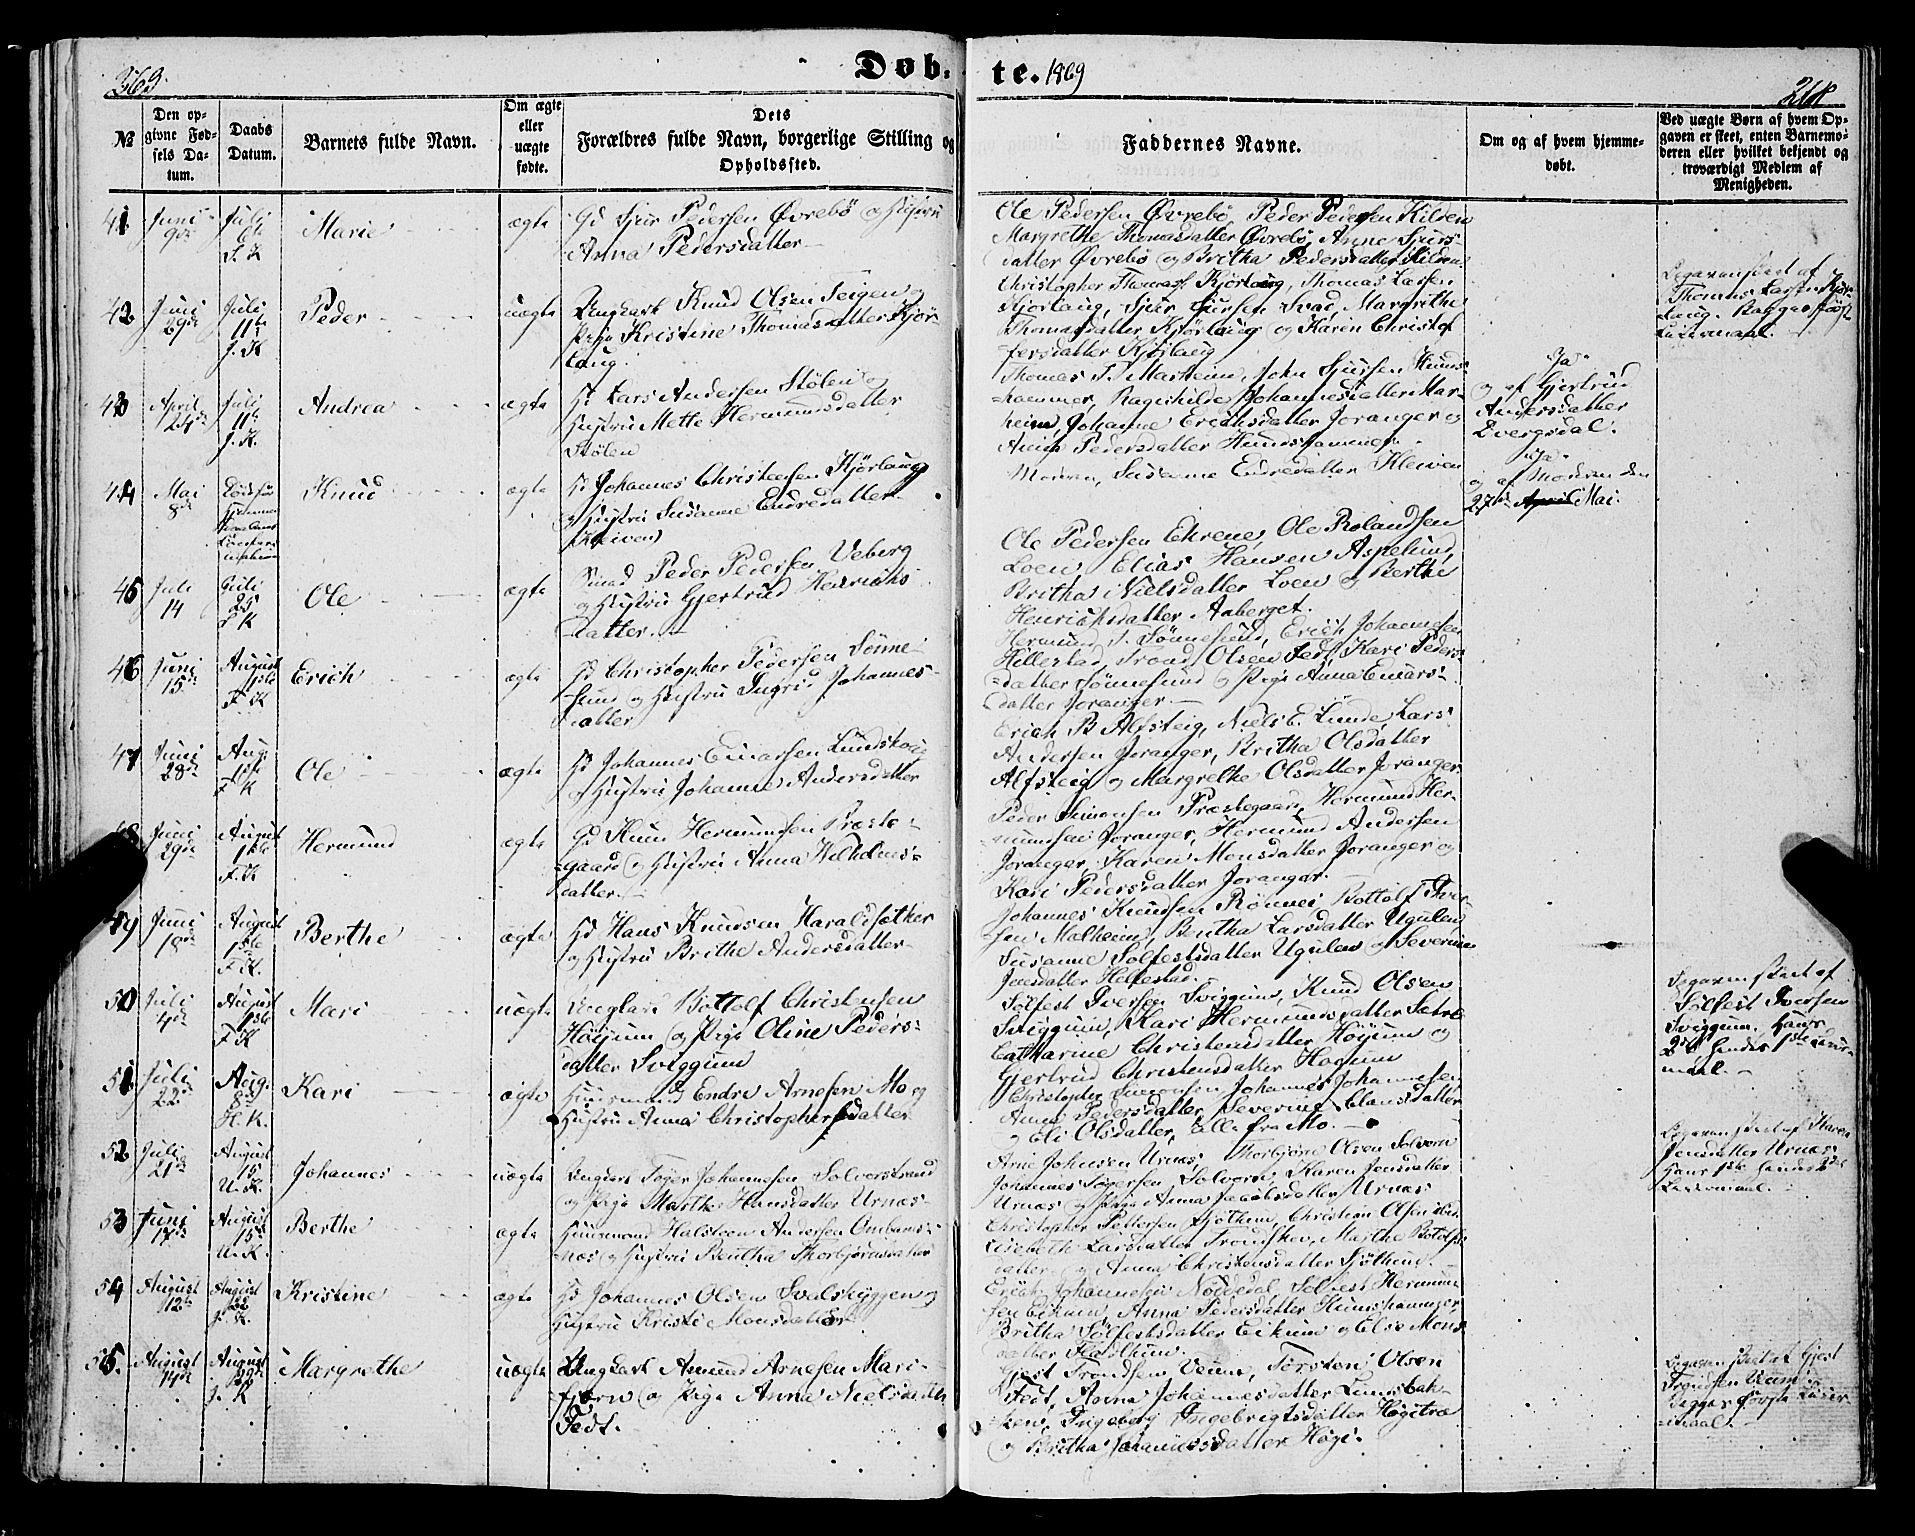 363.
Døb-
te. 1869
268
№
Den op-
givne Fød-
sels Da-
tum.
Daabs
Datum.
Barnets fulde Navn.
Om ægte
eller
uægte
fødte.
Dets
Forældres fulde Navn, borgerlige Stilling og
Opholdssted.
Faddernes Navne.
Om og af hvem hjemme-
døbt.
Ved uægte Børn af hvem Op-
gaven er skeet, enten Barnemo-
deren eller hvilket bekjendt og
troværdigt Medlem af
Menigheden.
41 Juni 9de
Juli
Marie
ægte
Gd Sjur Pedersen Øvrebö og Hustru
Anna Pedersdatter
Ole Pedersen Øvrebö, Peder Pedersen Kilden
Margrethe Thomasdatter Øvrebö, Anne Sjurs-
datter Øvrebö og Britha Pedersdatter Kilden
42 Juni 29de
Juli 11te
J. K
Peder
uægte
Ungkarl Knud Olsen Teigen og
Pige Kristine Thomasdatter Kjör-
laug.
Christopher Thomas. Kjörlaug, Thomas Larsen
Kjörlaug, Sjur Sjursen Svad, Margrithe
Thomasdatter Kjörlaug og Karen Christof
fersdatter Kjörlaug
Thomas Larsen Kjör-
laug. Begges
Leiermaal
43 April
Juli 11te
J. K.
Andrea
ægte
Gd Lars Andersen Stölen og
Hustru Mette Hermundsdatter
Stölen
Thomas T. Marheim, John Sjursen Hunds-
hammer, Ragnhilde Johannesdatter Mar-
heim, Johanne Erichsdatter Joranger og
Pedersdatter Hundshammer
Ja
og af Gjertrud
Andersdatter
44 Mai 8de
Knud
ægte
Gd Johannes Christensen Kjörlaug
og Hustru Susanne Endredatter
Kleiven
Moderen, Susanne Endredatter Kleiven
Ja
og af Moderen den
27de April Mai.
45 Juli 14
Juli 25
Ole
ægte
Peder Pedersen Veberg
og Hustru Gjertrud Henrichs
datter.
Ole Pedersen Ehrene, Ole Rolandsen
Loen, Elias Hansen Aspelund,
Britha Nielsdatter Loen og Berthe
Henrichsdatter Aaberget.
46 Juni 15de
August 1ste
F. K
Erich
ægte
Gd Christopher Pedersen Sönne-
sund og Hustru Ingrid Johannes-
datter
Hermund T. Sönnesund, Erich Johannesen
Hillestad, Troad Olsen Fedt, Kari Peders-
datter Sönnesund og Pige Anna Einars-
datter Joranger
47 Juni 28de
Aug. 1ste
F K
Ole
ægte
Gd Johannes Einarsen Lundshoug
og Hustru Johanne Andersdatter
Erich B Alsteig, Niels E. Lunde, Lars
Andersen Joranger, Britha Olsdatter
Alfsteig og Margrethe Olsdatter Joranger
48 Juni 29de
August 1ste
F. K
Hermund
ægte
Gd Knud Hermundsen Præste-
gaard og Hustru Anna Wilhelms-
datter.
Peder Simonsen Præstegaard, Hermund Her-
mundsen Joranger, Hermund Andersen
Joranger, Karen Monsdatter Joranger og
Kari Pedersdatter Joranger.
49 Juni 18de
August 1ste
F. K.
Berthe
ægte
Gd Hans Knudsen Haraldsæther
og Hustru Brithe Andersdatter
Johannes Knudsen Rönnei, Bottolf Iver-
sen Molheim, Bertha Larsdatter Ugulen,
Susanne Solfestsdatter Ugulen og Severine
Jensdatter Hellestad.
50 Juli 4de
August 1ste
F K
Mari
uægte
Bottolf Christensen
Höijum og Pige Oline Peders-
datter Sviggum
Solfest Iversen Sviggum, Knud Olsen
Sviggum, Kari Hermundsdatter Sætre
Catharine Christensdatter Höijum og
Gjertrud Christensdatter Höijum
Solfest Iversen
Sviggum. Hans
2det hendes 1ste Leier-
maal.
51 Juli 22de
Aug. 8de
H. K.
Kari
ægte
Huusmand Endre Arnesen Mo og
Hustru Anna Christophersdatter
Christopher Simonsen, Johannes Johannesen
Anna Pedersdatter, Severine Clausdatter
og Eli Olsdatter, alle fra Mo.
52 Juli 21de
August 15
U. K.
Johannes
uægte
Ungkarl Johannesen Solvorstrand
og Pige Marthe Hansdatter Urnæs
Arne Johnsen Urnæs, Thorbjörn Olsen Solvorn
Johannes Solvorn, Karen Jensdatter
Urnæs og Pige Anna Jacobsdatter Urnæs
Opgaven skeet af Karen
Jensdatter Urnæs
Hans 1ste hendes 2det
Leiermaal.
53 Juni 17de
August 15de
U. K.
Berthe
ægte
Huusmand Halsteen Andersen Ombands-
næs og Hustru Bertha Thorbjörnsdatter
Christopher Pettersen Sjöthun, Christian Olsen
Elisabeth Larsdatter, Marthe Botolfs
datter og Anna Christensdatter Sjöthun.
54 August 12te
August 22
J. K.
Kristine
ægte
Gd Johannes Olsen Svalshyggen og
Hustru Kristi Monsdatter
Erich Johannesen Nöddedal, Solfest Hermun
sen Eikum, Anna Pedersdatter Hundshammer
Britha Solfestsdatter Eikum og Else Mons
datter Hadlhun.
55. August 14de
August 22de
J. K
Margrethe
uægte
Ungkarl Amund Arnesen Mari-
fjören og Pige Anna Nielsdatter
Fedt.
Gjest Trondsen Veum, Torsten Olsen
Fedt, Anna Johannesdatter Lundsbak-
ken, Ingeborg Ingebrigtsdatter Högetræ
og Britha Johannesdatter Högi.
Opgaven skeet af Gjest
Trondsen Veum
Begges første Leier-
maal.